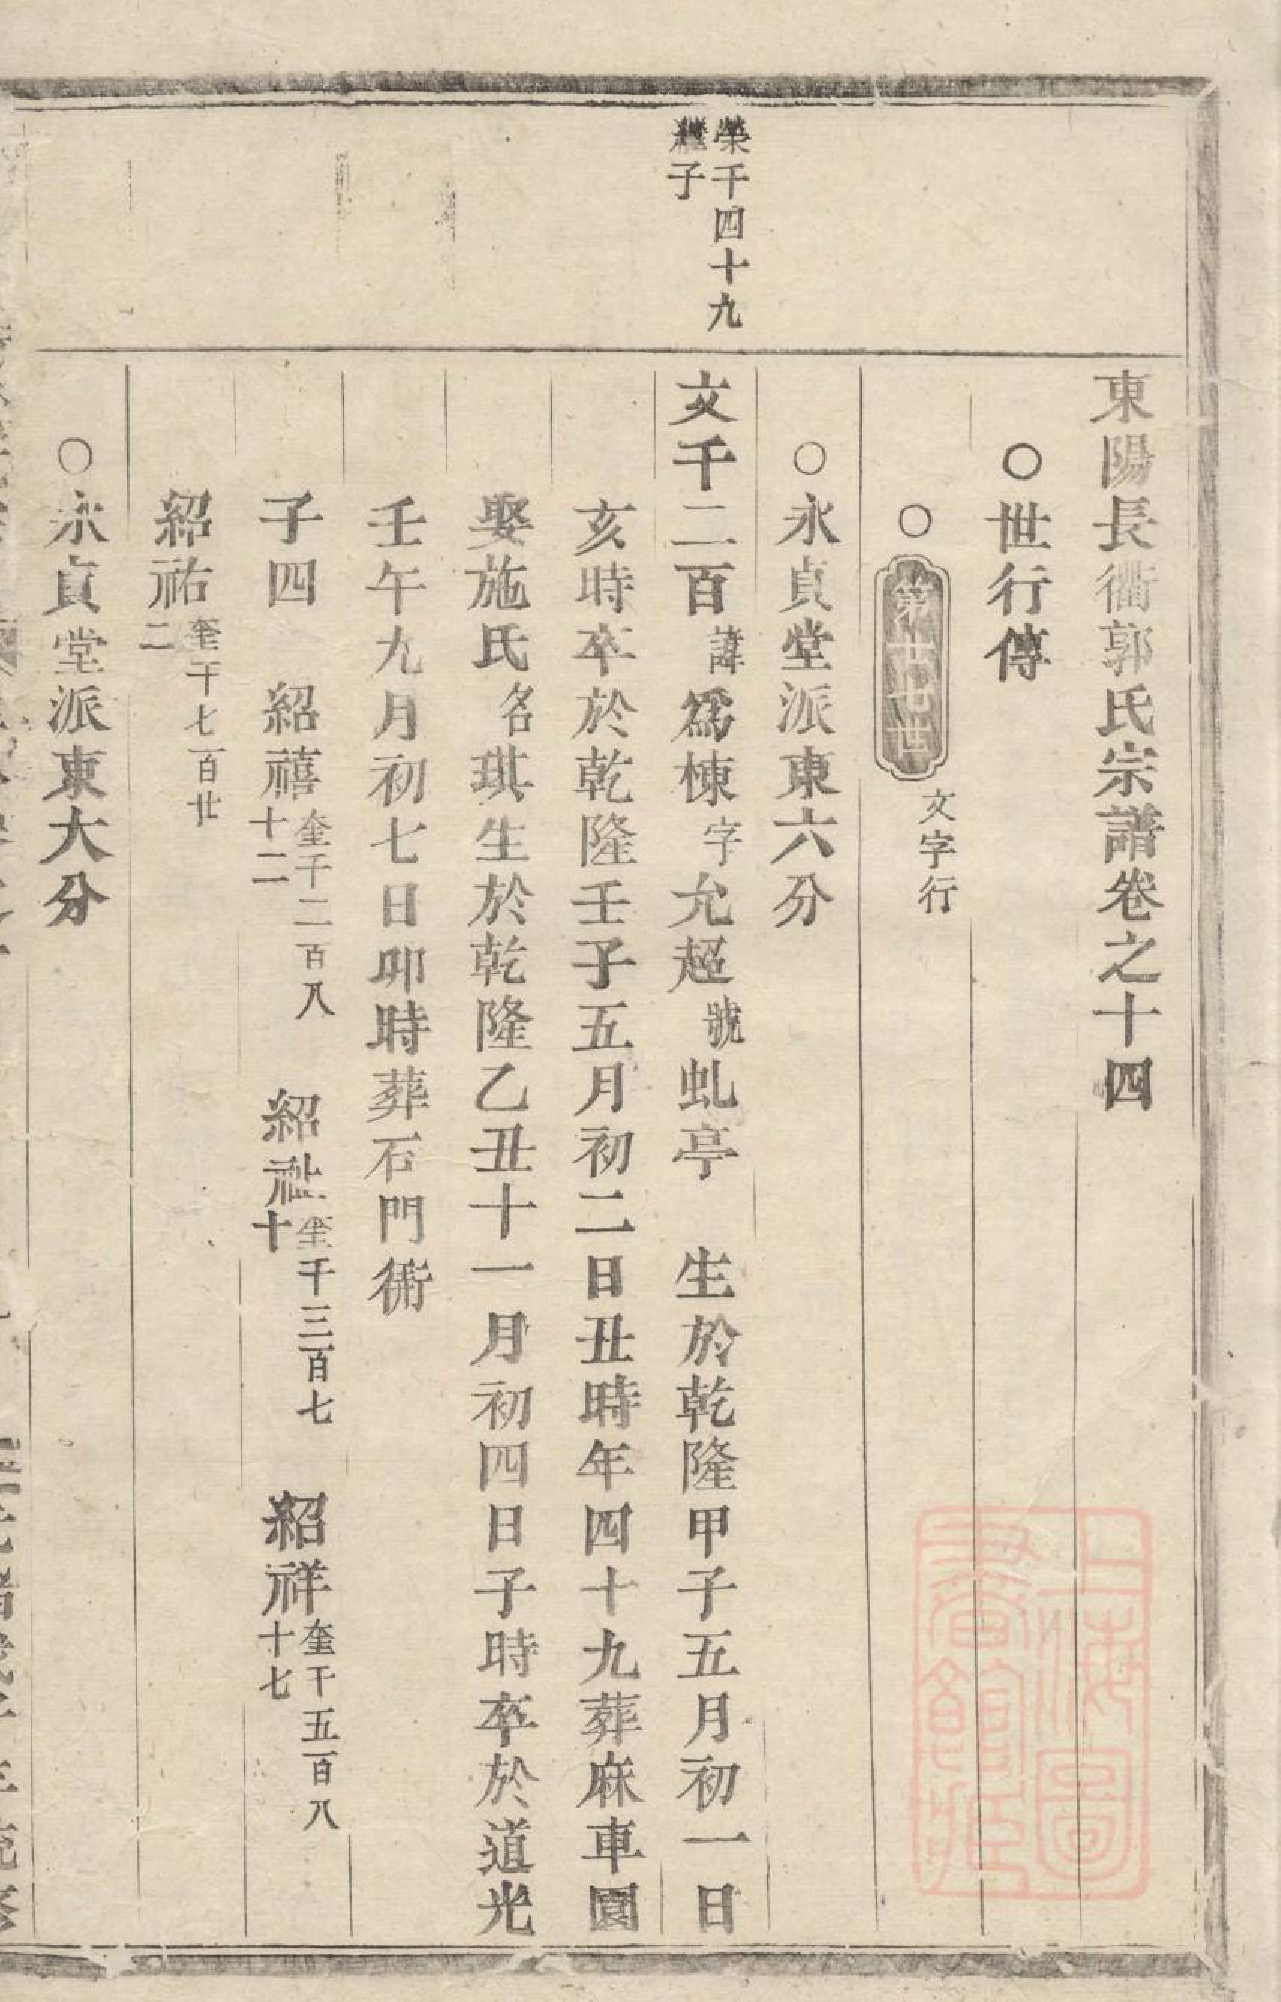 東陽長衢郭氏宗譜卷之十四
○世行傳
○第十七世 文字行
○永貞堂派東六分
榮千四十九
繼子
文千二百諱為棟字允超號虬亭 生於乾隆甲子五月初一日
亥時卒於乾隆壬子五月初二日丑時年四十九葬麻車園
娶施氏名琪生於乾隆乙丑十一月初四日子時卒於道光
壬午九月初七日卯時葬石門衕
子四 紹禧奎千二百八十二 紹祉奎千三百七十 紹祥奎千五百八十七
紹祐奎千七百廿二
○永貞堂派東大分
上海圖書館藏